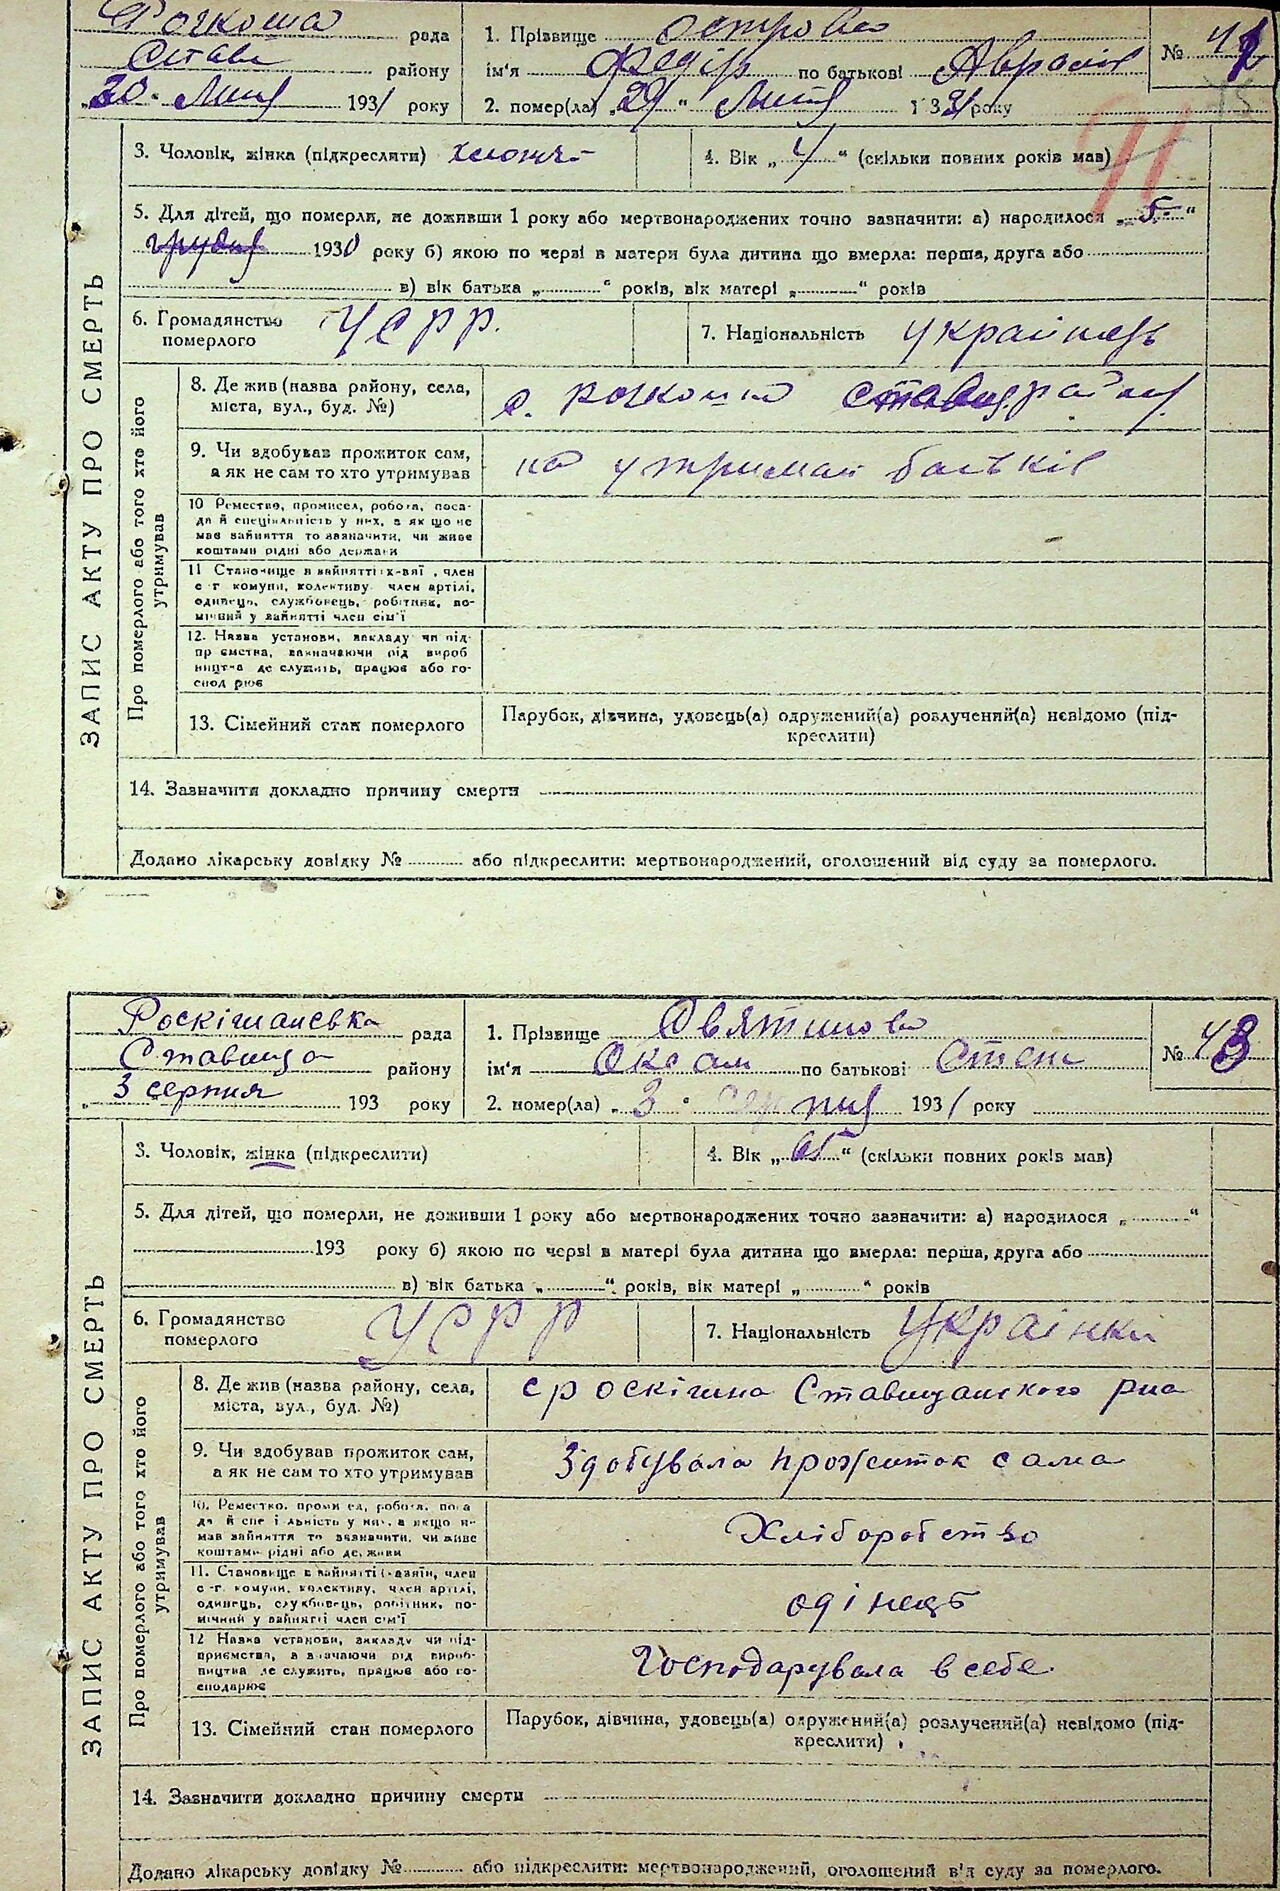 Рочкоша рада
Став району
„30" Липня 1931 року
1. Прізвище
ім'я Федір по батькові Аврамів
№ 42
2. помер(ла) „29" Липня 1931 року
3. Чоловік, жінка (підкреслити) хлопч-
4. Вік „4" (скільки повних років мав)
91
5. Для дітей, що померли, не доживши 1 року або мертвонароджених точно зазначити: а) народилося „5-"
грудня 1930 року б) якою по черзі в матери була дитина що вмерла: перша, друга або
в) вік батька „ " років, вік матері „ " років
6. Громадянство
померлого
УСРР.
7. Національність українець
8. Де жив (назва району, села,
міста, вул., буд. №)
с. Рочкоша Ставищ. району
9. Чи здобував прожиток сам,
а як не сам то хто утримував
на утриман батьків
10 Ремество, промисел, робота, поса-
да й спеціяльність у них, а як що не
має зайняття то зазначити, чи живе
коштами рідні або держави
11 Становище в зайнятті х-вяї, член
с-г комуни, колективу член артілі,
одинець, службовець, робітник, по-
мічний у зайнятті член сім'ї
12. Назва установи, закладу чи під-
приємства, зазначаючи рід вироб
ництва де служить, працює або го-
сподарює
13. Сімейний стан померлого
Парубок, дівчина, удовець(а) одружений(а) розлучений(а) невідомо (під-
креслити)
14. Зазначити докладно причину смерти
Додано лікарську довідку № або підкреслити: мертвонароджений, оголошений від суду за померлого.
ЗАПИС АКТУ ПРО СМЕРТЬ
Про померлого або того хто його
утримував
Роскішанська рада
Ставища району
„3 серпня 193 року
1. Прізвище
ім'я Оксан по батькові Степ
№ 43
2. помер(ла) „3" серпня 1931 року
3. Чоловік, жінка (підкреслити)
4. Вік „65" (скільки повних років мав)
5. Для дітей, що померли, не доживши 1 року або мертвонароджених точно зазначити: а) народилося „ "
193 року б) якою по черзі в матері була дитина що вмерла: перша, друга або
в) вік батька „ " років, вік матері „ " років
6. Громадянство
померлого
УСРР
7. Національність Українки
8. Де жив (назва району, села,
міста, вул., буд. №)
с Роскішна Ставищанского рна
9. Чи здобував прожиток сам,
а як не сам то хто утримував
Здобувала прожиток сама
10. Ремество, промисел, робота, поса
да й спеціяльність у них, а якщо н-
має зайняття то зазначити, чи живе
коштами рідні або держави
Хліборобство
11. Становище в зайнятті х-вяїн, член
с-г. комуни, колективу, член артілі,
одинець, службовець, робітник, по-
мічний у зайнятті член сім'ї
одінець
12 Назва установи, закладу чи під-
приємства, зазначаючи рід вироб-
ництва де служить, працює або го-
сподарює
Господарувала в себе
13. Сімейний стан померлого
Парубок, дівчина, удовець(а) одружений(а) розлучений(а) невідомо (під-
креслити)
14. Зазначити докладно причину смерти
Додано лікарську довідку № або підкреслити: мертвонароджений, оголошений від суду за померлого.
ЗАПИС АКТУ ПРО СМЕРТЬ
Про померлого або того хто його
утримував